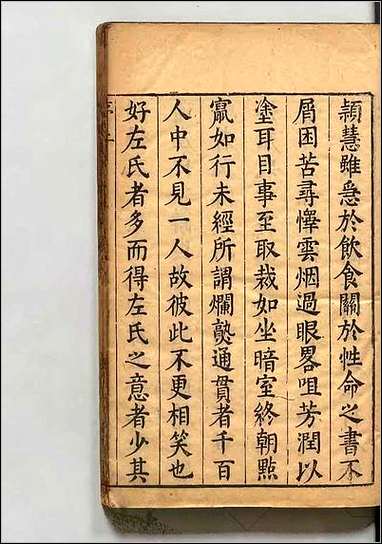 頴慧雖急於飲食關於性命之書不
屑困苦尋懌雲烟過眼畧咀芳潤以
塗耳目事至取裁如坐暗室終朝㸃
竄如行未經所謂爛熟通貫者千百
人中不見一人故彼此不更相笑也
好左氏者多而得左氏之意者少其